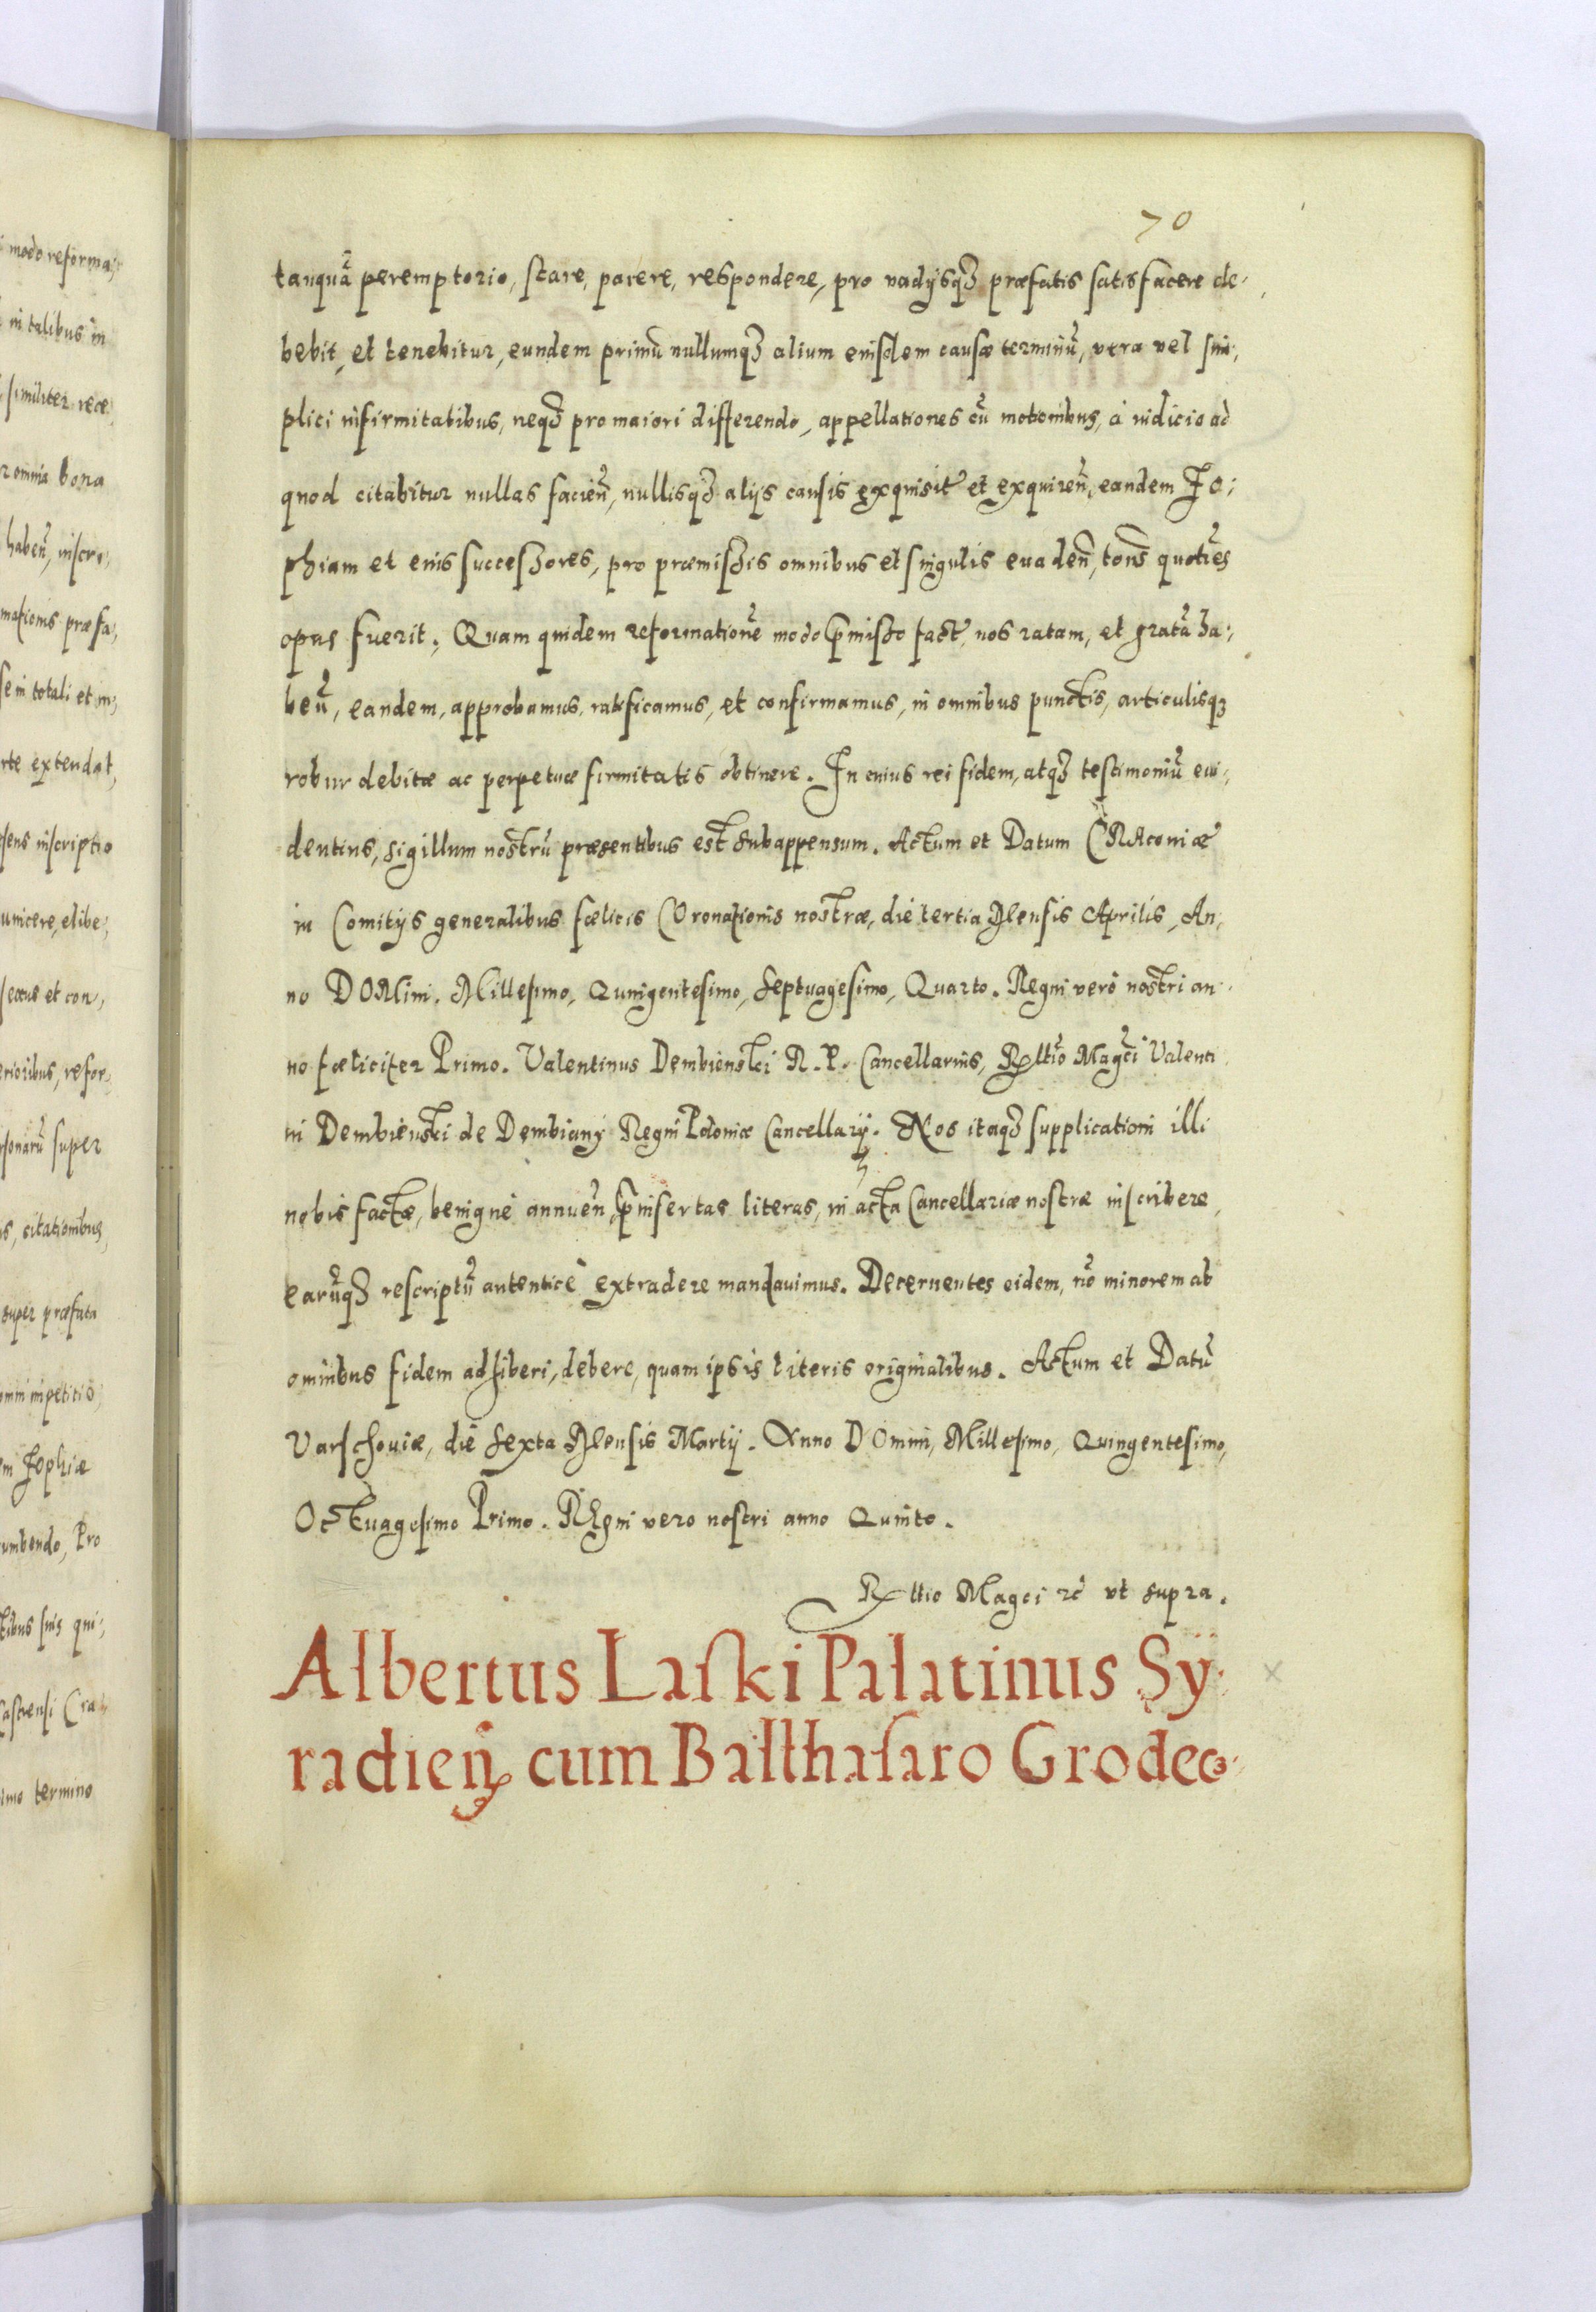 70
tanquã peremptorio, stare, parere, respondere, pro vadijsqȝ præfatis satisfacere de-
bebit, et tenebitur, eundem primũ nullumqȝ alium euisdem causæ terminũ, vera vel sim-
plici infirmitatibus, neqȝ pro maiori differendo, appellationes cũ motionibus, à iudicio ad
quod citabitur nullas facieñ, nullisqȝ alijs causis exquisit̃ et exquireñ, eandem Zo:
phiam et euis successores, pro præmissis omnibus et singulis euadeñ, toñs quotiẽs
opus fuerit. Quam quidem reformationẽ modo p̃misso fact̃ nos ratam, et gratã ha:
beñ, eandem, approbamus, ratificamus, et confirmamus, in omnibus punctis, articulisqȝ
robur debitæ ac perpetuæ firmitatis obtinere. In cuius rei fidem, atqȝ testimoniũ eui-
dentius, sigillum nostrũ præsentibus est subappensum. Actum et Datum CRAcouiæ
in Comitijs generalibus fœlicis COronationis nostræ, die tertia Mensis Aprilis, An-
no DOMini. Millesimo, Quingentesimo, Septuagesimo, Quarto. Regni verò nostri an-
no fœliciter Primo. Valentinus Dembienski R. P. Cancellarius, Rɫɫio Magci Valenti
ni Dembienski de Dembiany Regni Poloniæ Cancellarij. Nos itaqȝ supplicationi illi
nobis factæ, benignè annueñ, p̃insertas literas, in acta Cancellariæ nostræ inscribere,
earũqȝ rescriptũ autenticè extradere mandauimus. Decernentes eidem, nõ minorem ab
omnibus fidem adhiberi, debere, quam ipsis literis originalibus. Actum et Datũ
Varschouiæ, die Sexta Mensis Martij. Anno DOmini, Millesimo, Quingentesimo,
Octuagesimo Primo. REgni vero nostri anno Quinto.
Rɫɫio Magci ꝛc̃ vt supra.
Albertus Laski Palatinus Sy-
radieñ cum Balthasaro Grodec-